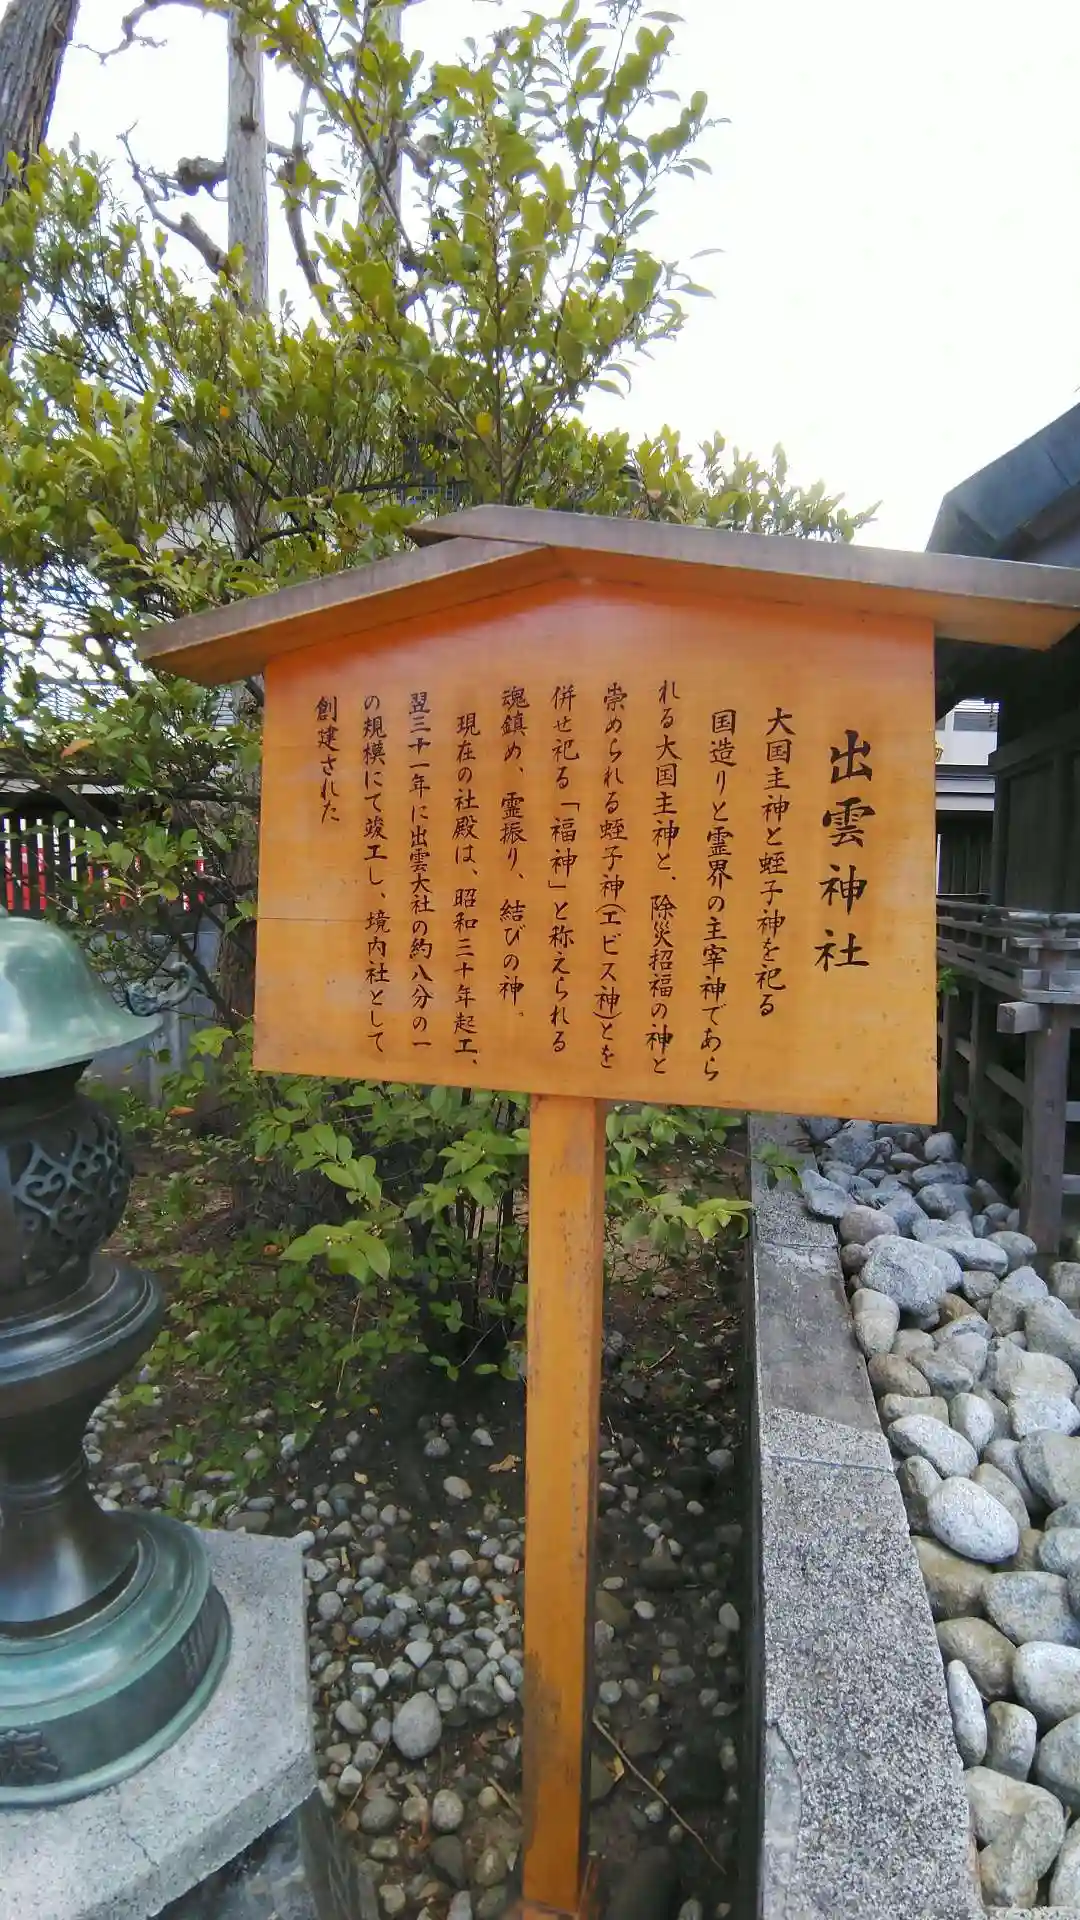 出雲神社
大国主神と蛭子神を祀る
国造りと霊界の主宰神であら
れる大国主神と、除災招福の神と
崇められる蛭子神(エビス神)とを
併せ祀る「福神」と称えられる
魂鎮め、霊振り、結びの神。
現在の社殿は、昭和三十年起工、
翌三十一年に出雲大社の約八分の一
の規模にて竣工し、境内社として
創建された